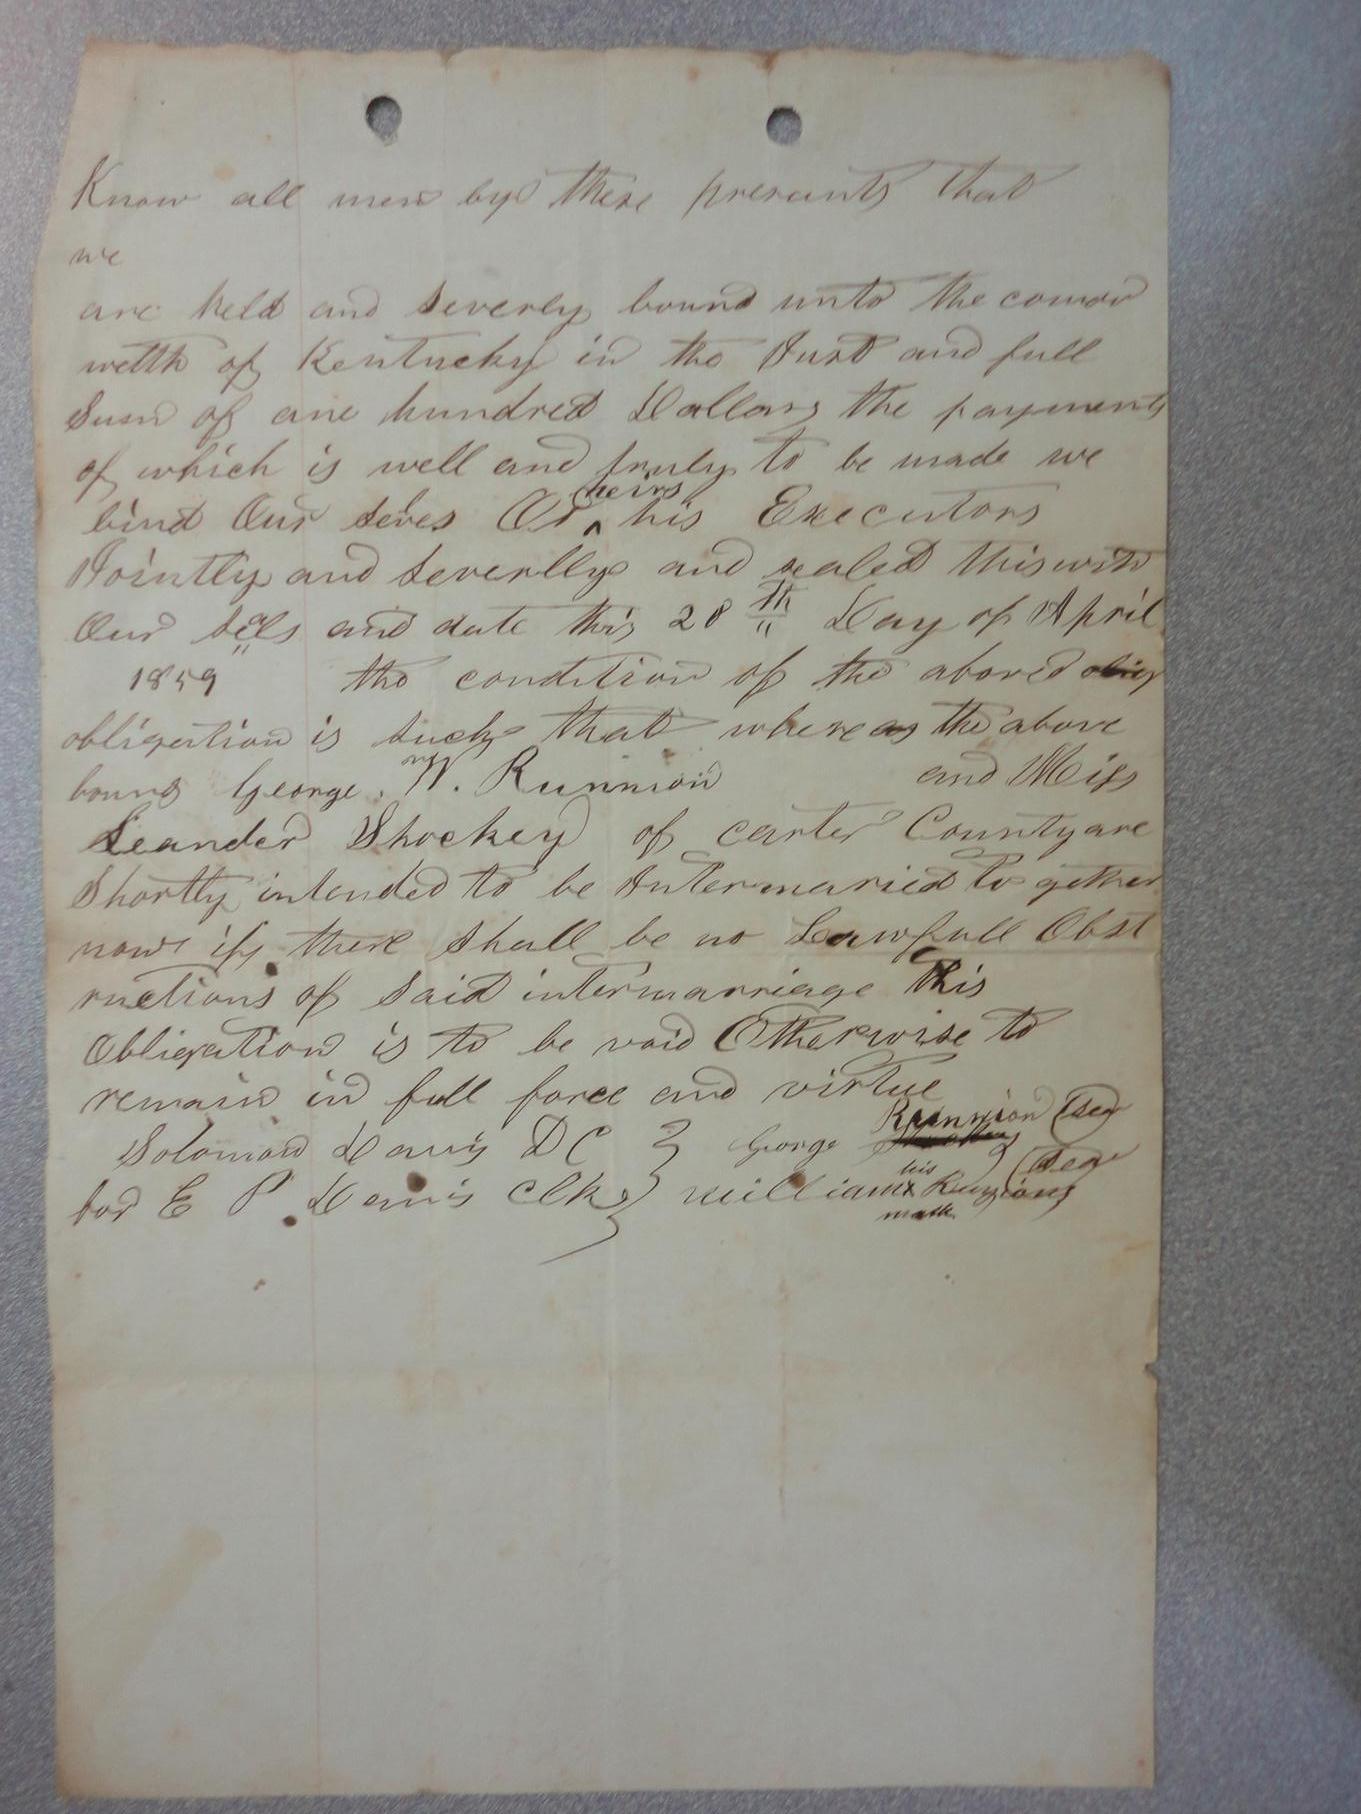 Know all men by these presants that
we
are held and severly bound unto the comon
welth of Kentucky in the Just and full
Sum of one hundred Dollars the payment
of which is well and truly to be made we
bind Our selves Or heirs his Executors
Jointly and Severlly and sealed this with
Our seels and date this 28th Day of April
1859 the condition of the above
obligation is such that whereas the above
bound George W. Runnion and Miss
Leander Shockey of carter County are
Shortly intended to be Intermaried to gether
now if there shall be no Lawfull Obst
ructions of Said intermarriage This
Obligation is to be void Otherwise to
remain in full force and virtue
Solomon Davis DC George Runnion (Seal)
for E P Davis Clk William his x mark Runyions (Seal)